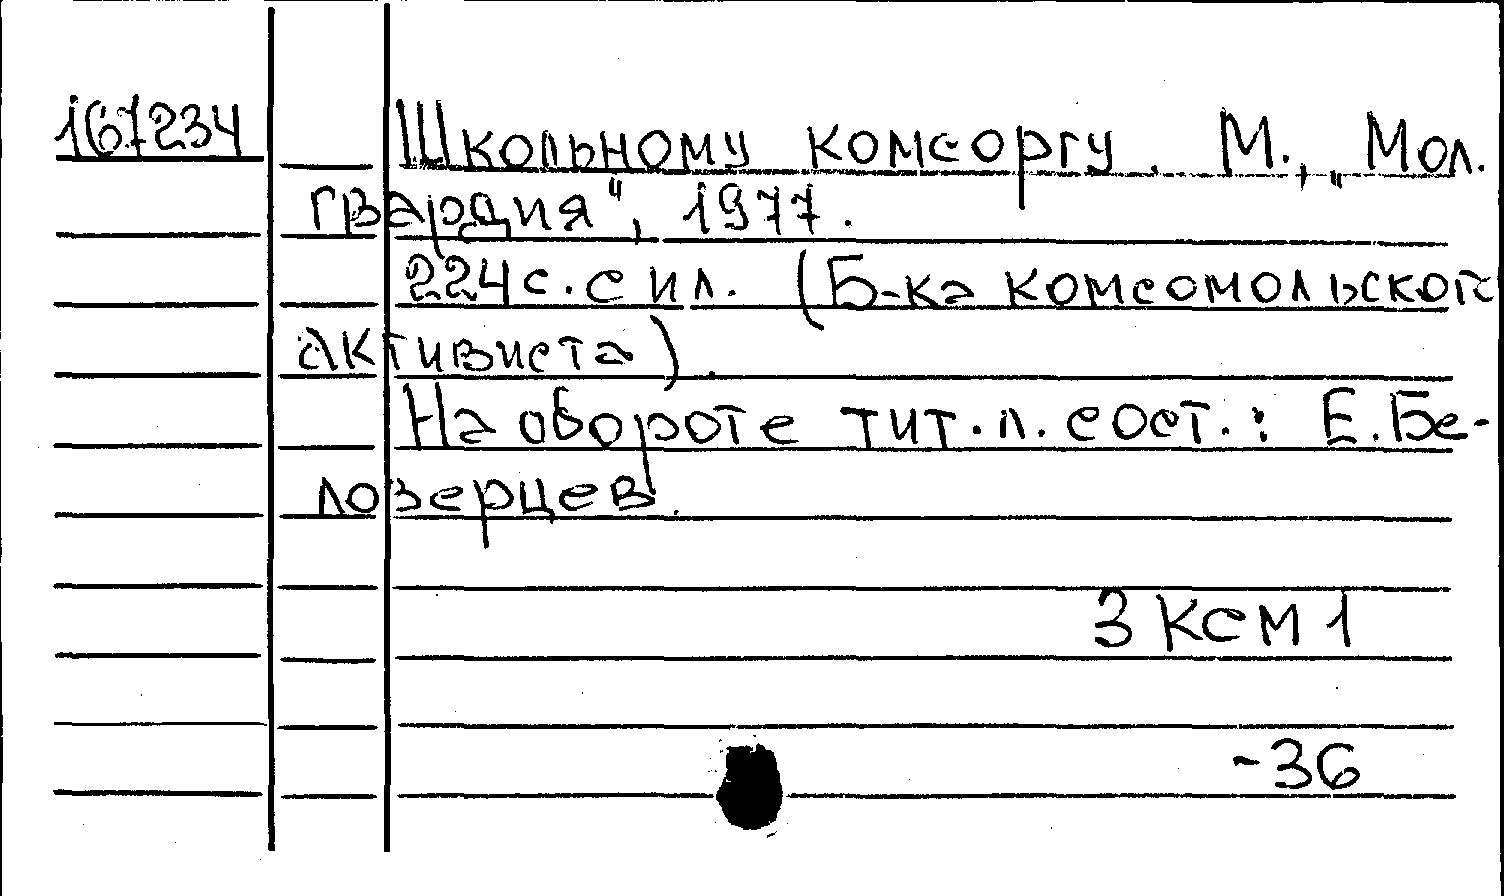 167234 Школьному комсоргу. М., „Мол.
гвардия", 1977.
224с. с ил. (Б-ка комсомольской
активиста).
На обороте тит. л. сост.: Е. Бе-
лозерцев.
3КСМ1
-36